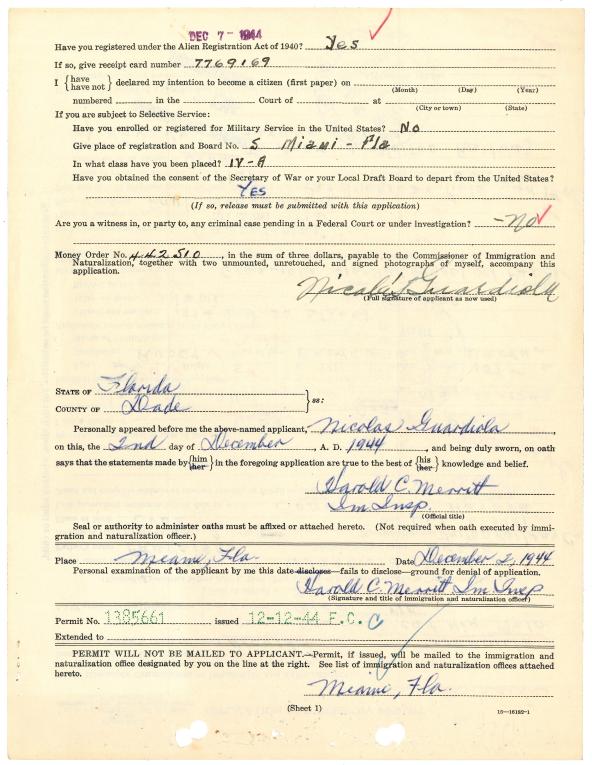 DEC 7 - 1944
Have you registered under the Alien Registration Act of 1940? Yes
If so, give receipt card number 7769169
I {have / have not} declared my intention to become a citizen (first paper) on
(Month) (Day) (Year)
numbered in the Court of at
(City or town) (State)
If you are subject to Selective Service:
Have you enrolled or registered for Military Service in the United States? No
Give place of registration and Board No. 5 Miami - Fla
In what class have you been placed? IV-A
Have you obtained the consent of the Secretary of War or your Local Draft Board to depart from the United States?
YES
(If so, release must be submitted with this application)
Are you a witness in, or party to, any criminal case pending in a Federal Court or under investigation? -No
Money Order No. 442510, in the sum of three dollars, payable to the Commissioner of Immigration and
Naturalization, together with two unmounted, unretouched, and signed photographs of myself, accompany this
application.
Nicolás Guardiola
(Full signature of applicant as now used)
STATE OF Florida
ss:
COUNTY OF Dade
Personally appeared before me the above-named applicant, Nicolas Guardiola
on this, the 2nd day of December, A. D. 1944, and being duly sworn, on oath
says that the statements made by {him / her} in the foregoing application are true to the best of {his / her} knowledge and belief.
Harold C. Merritt
Im Insp.
(Official title)
Seal or authority to administer oaths must be affixed or attached hereto. (Not required when oath executed by immi-
gration and naturalization officer.)
Place Miami, Fla. Date December 2, 1944
Personal examination of the applicant by me this date discloses—fails to disclose—ground for denial of application.
Harold C. Merritt Im Insp
(Signature and title of immigration and naturalization officer)
Permit No. 1385661 issued 12-12-44 F.C. C
Extended to
PERMIT WILL NOT BE MAILED TO APPLICANT.—Permit, if issued, will be mailed to the immigration and
naturalization office designated by you on the line at the right. See list of immigration and naturalization offices attached
hereto.
Miami, Fla.
(Sheet 1)
16—16192-1